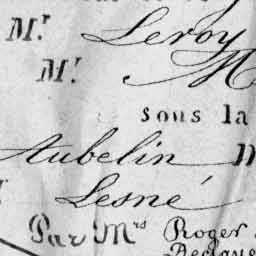 Mr. Leroy
Mr. M
sous la
Aubelin
Lesné
Par Mrs Roger